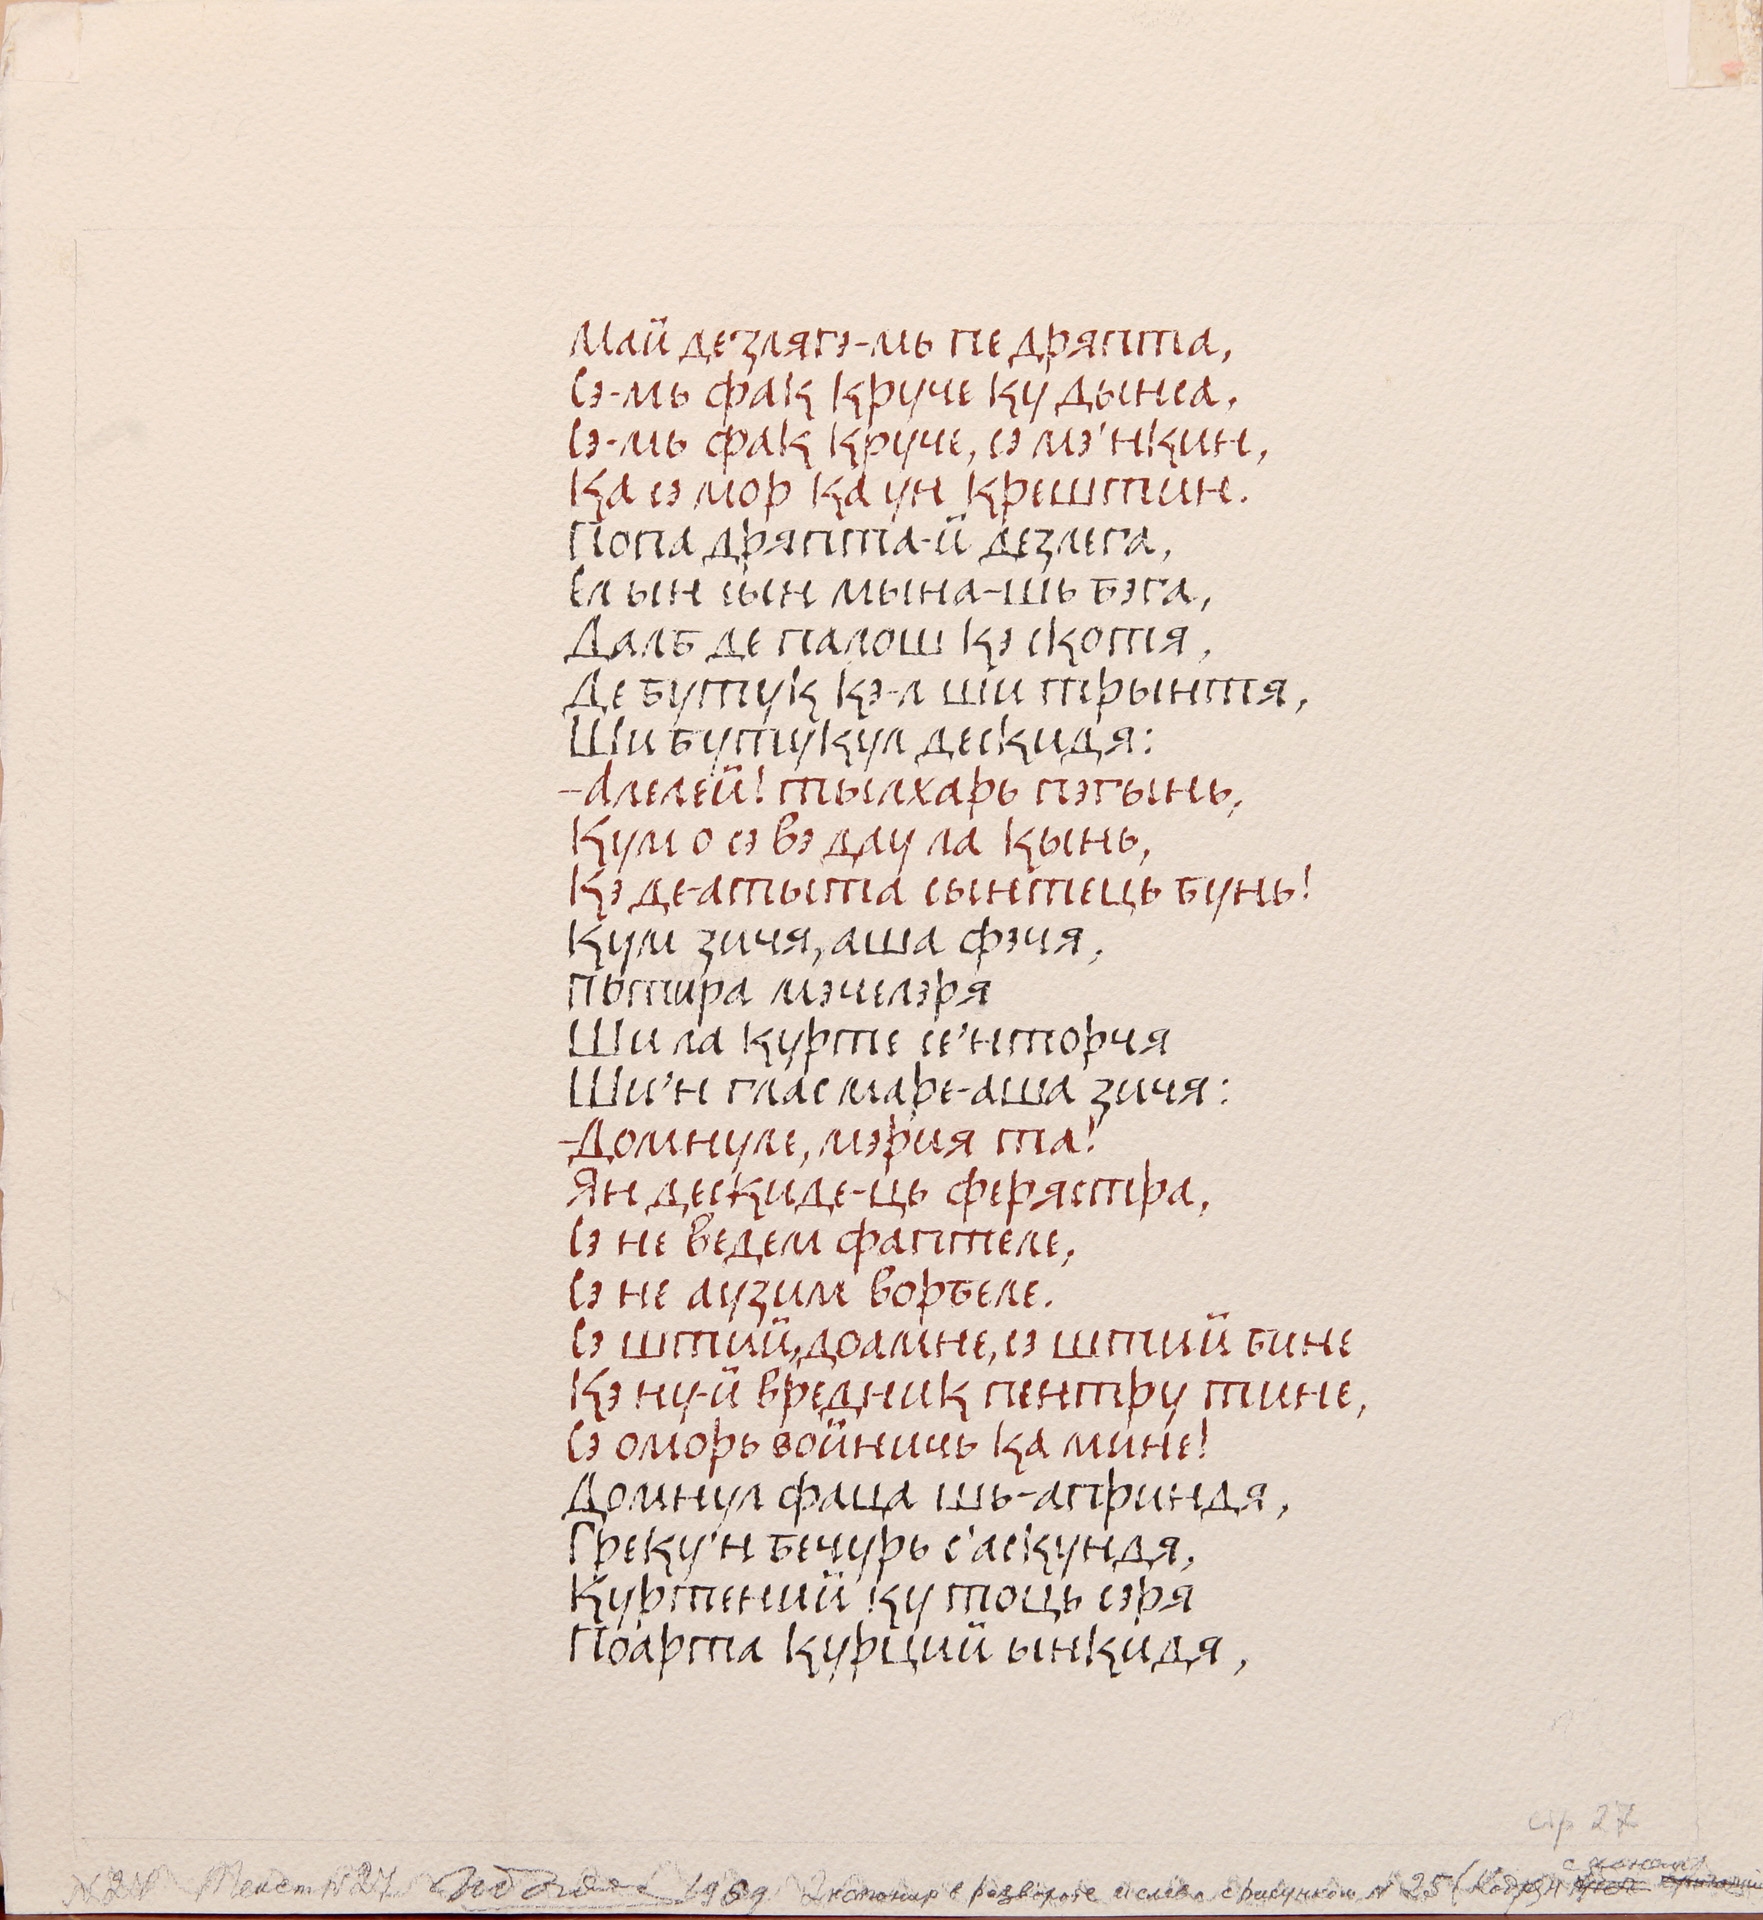 Май дезлягэ-мь пе дряпта,
Сэ-мь фак круче ку дынса,
Сэ-мь фак круче, сэ мэ'нкин,
Ка сэ мор ка ун крештин.
Попа дряпта-й дезлега,
Ел ын сын мына-шь бэга,
Далб де палош кэ скотя,
Де бутук кэ-л ши трынтя,
Ши бутукул дескидя:
-Алелей! тылхарь пэгынь,
Кум о сэ вэ дау ла кынь,
Кэ де-атыта сынтець бунь!
Кум зичя, аша фэчя,
Пытира мэчелэря
Ши ла курте се'нторчя
Ши'н глас маре-аша зичя:
-Домнуле, мэрия та!
Ян дескиде-ць ферястра,
Сэ не ведем фаптеле,
Сэ не аузим ворбеле.
Сэ штий, доамне, сэ штий бине
Кэ ну-й вредник пентру тине,
Сэ оморь войничь ка мине!
Домнул фаца шь-априндя,
Греку'н бечурь с'аскундя,
Куртений ку тоць сэря
Поарта курций ынкидя,
стр 27
Текст N 27 1969 в развороте слева с рисунком N 25 (Кодрян